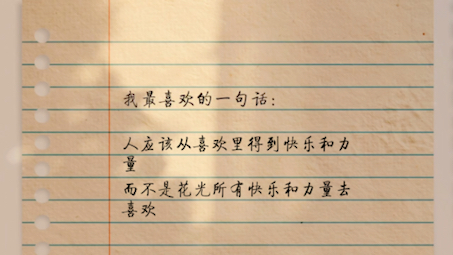 我最喜欢的一句话:
人应该从喜欢里得到快乐和力
量
而不是花光所有快乐和力量去
喜欢